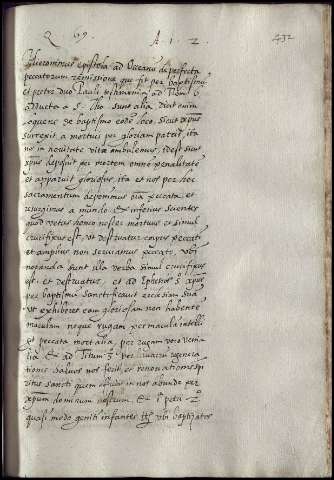 Q. 69. A. 1. 2. 432
Hieronimus epistola ad Oceanu de perfecta
peccatorum remissione que fit per baptismu
et preter duo Pauli testimonia ad Roma. 6
adducta a S. Tho. sunt alia dicit enim
loquens de baptismo eode loco sicut xpus
surrexit a mortuis per gloriam patris, ita
nos in novitate vite ambulemus, idest sicut
xpus deposuit per mortem omne penalitate
et apparuit gloriosus, ita et nos per hoc
sacramentum deponimus oia peccata et
resurgimus a mundo. et inferius scientes
quod vetus homo noster mortuus et simul
crucifixus est, ut destruatur corpus peccati
et amplius non serviamus peccato. ubi
notanda sunt illa verba simul crucifixus
est. et destruatur, et ad Ephesios 5. xpus
per baptismu sanctificavit ecclesiam sua
ut exhiberet eam gloriosam non habente
maculam neque rugam per macula intelli
git peccata mortalia, per rugam vero venia
lia. et ad Titum 3. per lavacru regenera
tionis salvos nos fecit, et renovationes spi
ritus sancti quem effudit in nos abunde per
xpum dominum nostrum. et 1. petri 2.
quasi modo geniti infantes ubi baptizatos